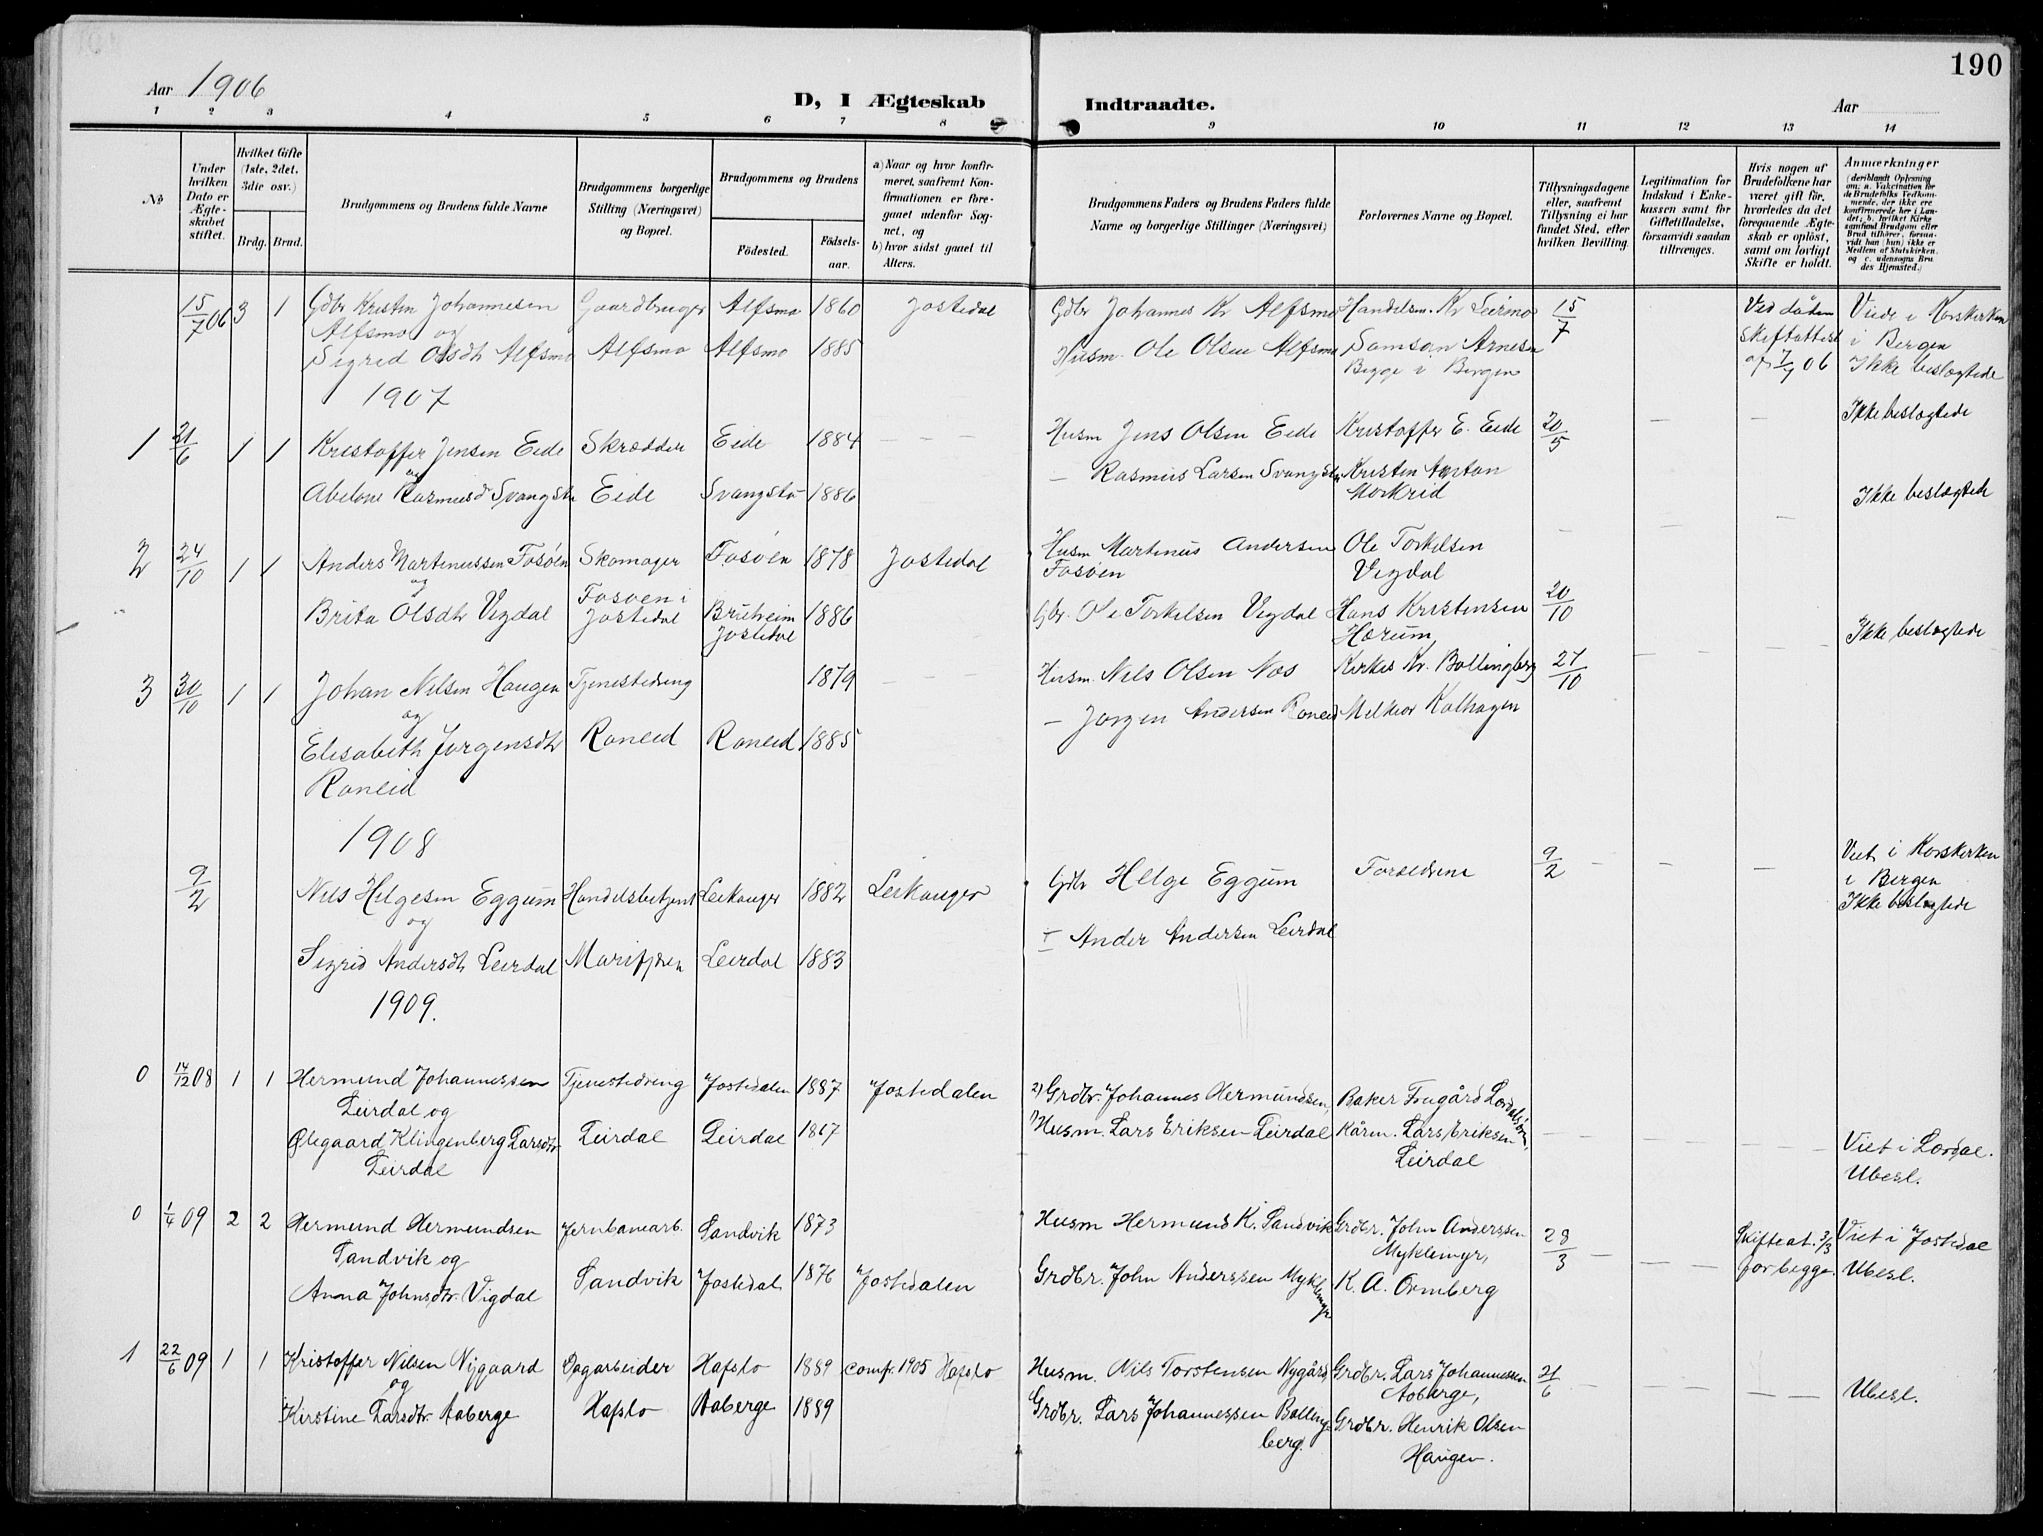 190
Aar 1906
D, I Ægteskab Indtraadte.
Aar
1 2 3 4 5 6 7 8 9 10 11 12 13 14
No
Under hvilken Dato er Ægteskabet stiftet.
Hvilket Gifte (1ste, 2det, 3die osv.)
Brdg. Brud.
Brudgommens og Brudens fulde Navne
Brudgommens borgerlige Stilling (Næringsvei) og Bopæl.
Brudgommens og Brudens
Fødested. Fødselsaar.
a) Naar og hvor konfirmeret, saafremt Konfirmationen er foregaaet udenfor Sognet, og
b) hvor sidst gaaet til Alters.
Brudgommens Faders og Brudens Faders fulde Navne og borgerlige Stillinger (Næringsvei)
Forlovernes Navne og Bopæl.
Tillysningsdagene eller, saafremt Tillysning ei har fundet Sted, efter hvilken Bevilling.
Legitimation for Indskud i Enkekassen samt for Giftetilladelse, forsaavidt saadan tiltrænges.
Hvis nogen af Brudefolkene har været gift før, hvorledes da det foregaaende Ægteskab er opløst, samt om lovligt Skifte er holdt.
Anmærkninger (deriblandt Oplysning om: a. Vakcination for de Brudefolks Vedkommende, der ikke ere konfirmerede her i Landet; b. hvilket Kirkesamfund Brudgom eller Brud tilhører, forsaavidt han (hun) ikke er Medlem af Statskirken, og c. udensogns Brudes Hjemsted.)
15/7 06 3 1 Gdbr Kristen Johannesen Gaardbruger Alfsmo 1860 Jostedal Gdbr Johannes Kr Alfsmo Handelsm. Kr Leirmo 15/7 Ved Døden Viede i Korskirken
Alfsmo og
Sigrid Olsdtr Alfsmo Alfsmo Alfsmo 1885 Husm. Ole Olsen Alfsmo Samson Arnesen Skifteattest i Bergen
Begge i Bergen af 7/7 06 Ikke beslægtede
1907
1 21/6 1 1 Kristoffer Jensen Eide Skrædder Eide 1884 — — — Husm Jens Olsen Eide Kristoffer E. Eide 20/5 — — Ikke beslægtede
og
Abelone Rasmusd Svangstu Eide Svangstu 1886 — Rasmus Larsen Svangstu Kristen Anton
Morkrid Ikke beslægtede
2 24/10 1 1 Anders Martinussen Fosøen Skomager Fosøen 1878 Jostedal Husm Martinus Andersen Ole Torkelsen —
og Fosøen Vigdal
Brita Olsdtr Vigdal Fosøen i Jostedal Bruheim Jostedal 1886 Gbr. Ole Torkelsen Vigdal Hans Kristensen 20/10
Hærum, Ikke beslægtede
3 30/10 1 1 Johan Nilsen Haugen Tjenestedreng 1879 — — — Husm. Nils Olsen Nos Kirkes. Kr. Bollingberg 27/10 — — —
og
Elisabeth Jørgensdtr Roneid Roneid 1885 — Jørgen Andersen Roneid Melkior Kalhagen
Roneid
1908
9/2 Nils Helgesen Eggum Handelsbetjent Leikanger 1882 Leikanger Gdbr Helge Eggum Forsedrene 9/2 — — — Viet i Korskirken
og i Bergen
Ikke beslægtede
Sigrid Andersdtr Leirdal Marifjøren Leirdal 1883 Ander Andersen Leirdal
1909.
0 14/12 08 1 1 Hermund Johannessen Tjenestedreng Jostedalen 1887 Jostedalen 2) Grdbr. Johannes Hermundsen, Baker Frugård Lærdalsøren,
Leirdal og
Ølegaard Klingenberg Larsdtr. Leirdal Leirdal 1867 1) Husm. Lars Eriksen Leirdal Kårm. Lars Eriksen — — — — Viet i Lærdal.
Leirdal Leirdal Ubesl.
0 1/4 09 2 2 Hermund Hermundsen Jernbanearb. Sandvik 1873 Husm Hermund K. Sandvik Grdbr. John Anderssen 28/3 — — — Skifteat. 3/3 Viet i Jostedal
Sandvik og Myklemyr, for begge. Ubesl.
Anna Johnsdtr. Vigdal Sandvik Jostedal 1876 Jostedalen Grdbr. John Anderssen Myklemyr K. A. Ormberg
1 22/6 09 1 1 Kristoffer Nilsen Nygaard Dagarbeider Hafslo 1889 conf. 1905 Hafslo Husm. Nils Torstensen Nygård Grdbr. Lars Johannessen 21/6 — — — — Ubesl.
og Aaberge,
Kirstine Larsdtr. Aaberge Hafslo Aaberge 1889 Grdbr. Lars Johannessen Bollingberg. Grdbr. Henrik Olsen
Haugen.